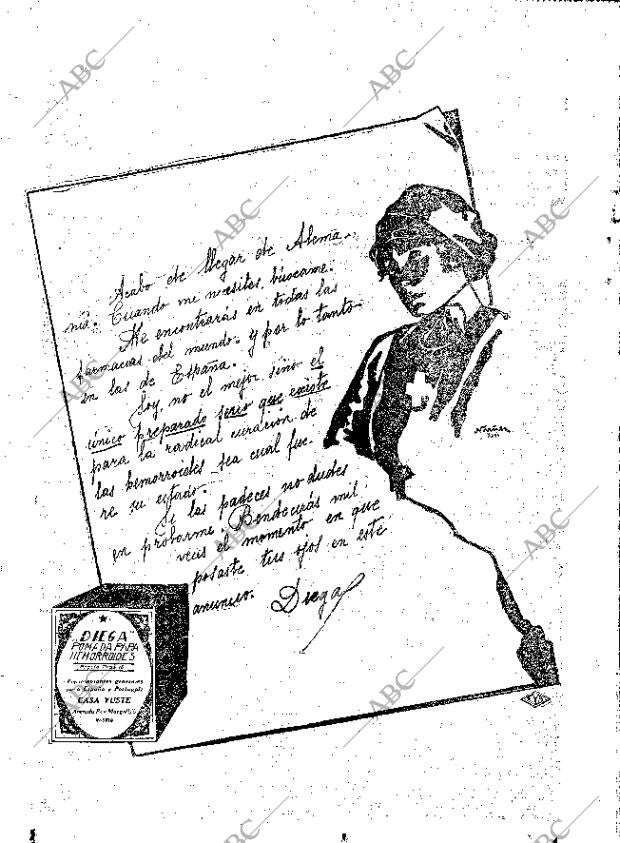 ABC
ABC
Acabo de llegar de Alema-
nia. Cuando me necesites, búscame.
Me encontrarás en todas las
farmacias del mundo. y por lo tanto
en las de España.
Soy, no el mejor, sino el
único preparado serio que existe
para la radical curación de
las hemorroides, sea cual fue-
re su estado.
Si las padeces no dudes
en probarme. Bendecirás mil
veces el momento en que
posaste tus ojos en este
anuncio. Diega
"DIEGA"
POMADA PARA
HEMORROIDES
Representantes generales
para España y Portugal
CASA YUSTE
Avenida Pi y Margall